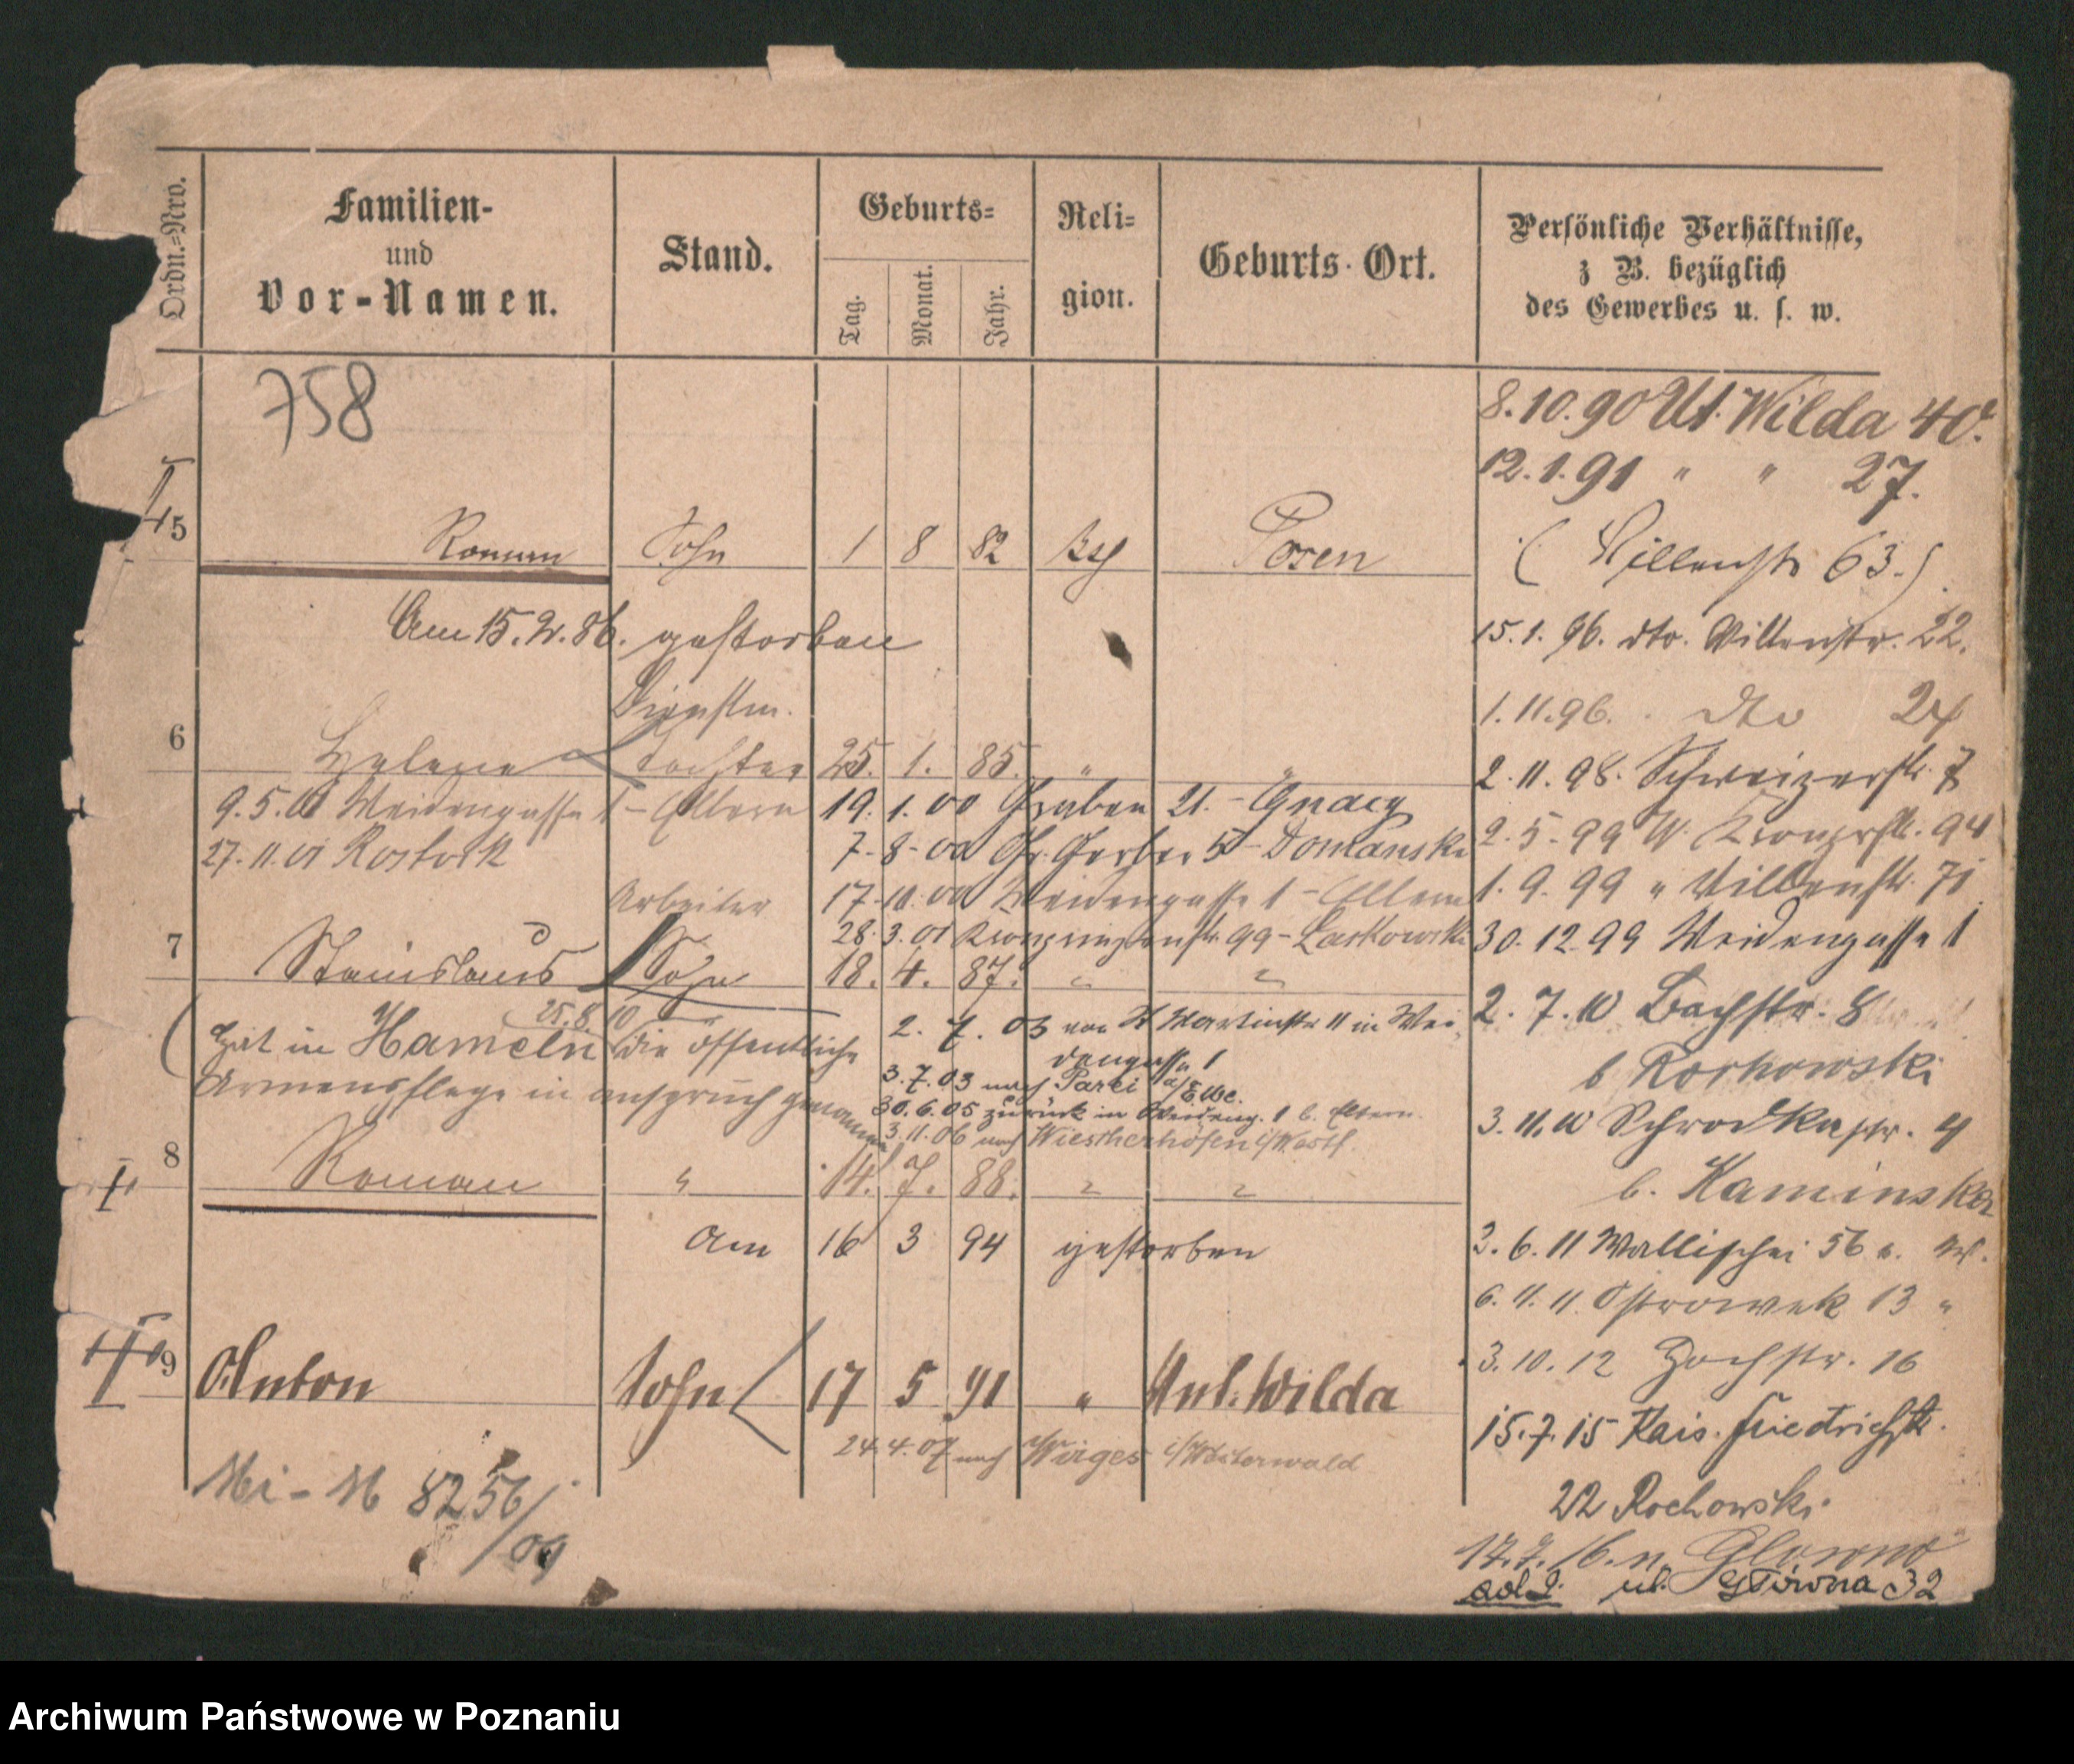 Ordn.=Nro.
Familien-
und
Vor-Namen.
Stand.
Geburts=
Tag.
Monat.
Jahr.
Reli=
gion.
Geburts-Ort.
Persönliche Verhältnisse,
z B. bezüglich
des Gewerbes u. s. w.
758
5 Roman Sohn 1 8 82 Posen
Am 15.2.86. gestorben
Dienstm.
6 Helene Tochter 25. 1. 85. " "
9.5.01 Weidengasse 1 - Eltern 19. 1. 00 Graben 21. - Gnacy
27.11.01 Rostock 7-8-00 Gr. Gerber 5 - Domanska
Arbeiter 17-10.00 Weidengasse 1 - Eltern
28.3.01 Kronprinzenstr. 99 - Laskowska
7 Stanislaus Sohn 18. 4. 87. " "
25.8.10
(Hat in Hameln die öffentliche
Armenpflege in anspruch genommen
2. 7. 03 von St Martinstr 11 in Wei-
dengasse 1
3.7.03 nach Parei a/Elbe.
30.6.05 zurück in Weideng. 1 b. Eltern.
3.11.06 nach Wiescherhöfen i/Westf.
8 Roman " 14. 7. 88. " "
Am 16 3 94 gestorben
9 Anton Sohn 17 5 91 " Unt. Wilda
24.4.07 nach Wirges i/Westerwald
Mi-M 8256/09
8.10.90 Ut. Wilda 40.
12.1.91 " " 27.
(Villenstr 63.)
15.1.96. dto. Villenstr. 22.
1.11.96. dto 24
2.11.98. Schweizerstr. 7
2.5.99 W. Kronprstr. 94
1.9.99 " Villenstr. 71
30.12.99 Weidengasse 1
2.7.10 Bachstr. 8
b Rochowski
3.11.10 Schrodkastr. 4
b. Kaminska
3.6.11 Wallischei 56
6.11.11 Ostrowek 13 "
3.10.12 Zochstr. 16
15.7.15 Kais. Friedrichstr.
22 Rochowski
17.7.16. n. Glowno
ul. Główna 32
Archiwum Państwowe w Poznaniu